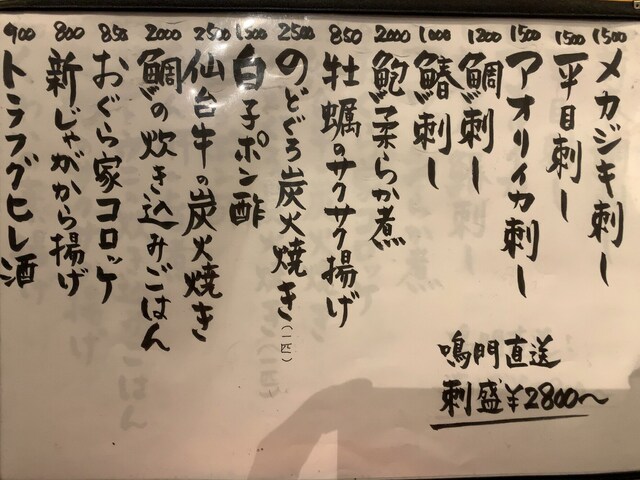 1500 メカジキ刺し
1500 平目刺し
1500 アオリイカ刺し
1200 鯛刺し
1000 鰆刺し
2000 鮑柔らか煮
850 牡蠣のサクサク揚げ
2500 のどぐろ炭火焼き(一匹)
1500 白子ポン酢
2500 仙台牛の炭火焼き
2000 鯛の炊き込みごはん
850 おぐら家コロッケ
800 新じゃがから揚げ
900 トラフグヒレ酒
鳴門直送
刺盛¥2800〜